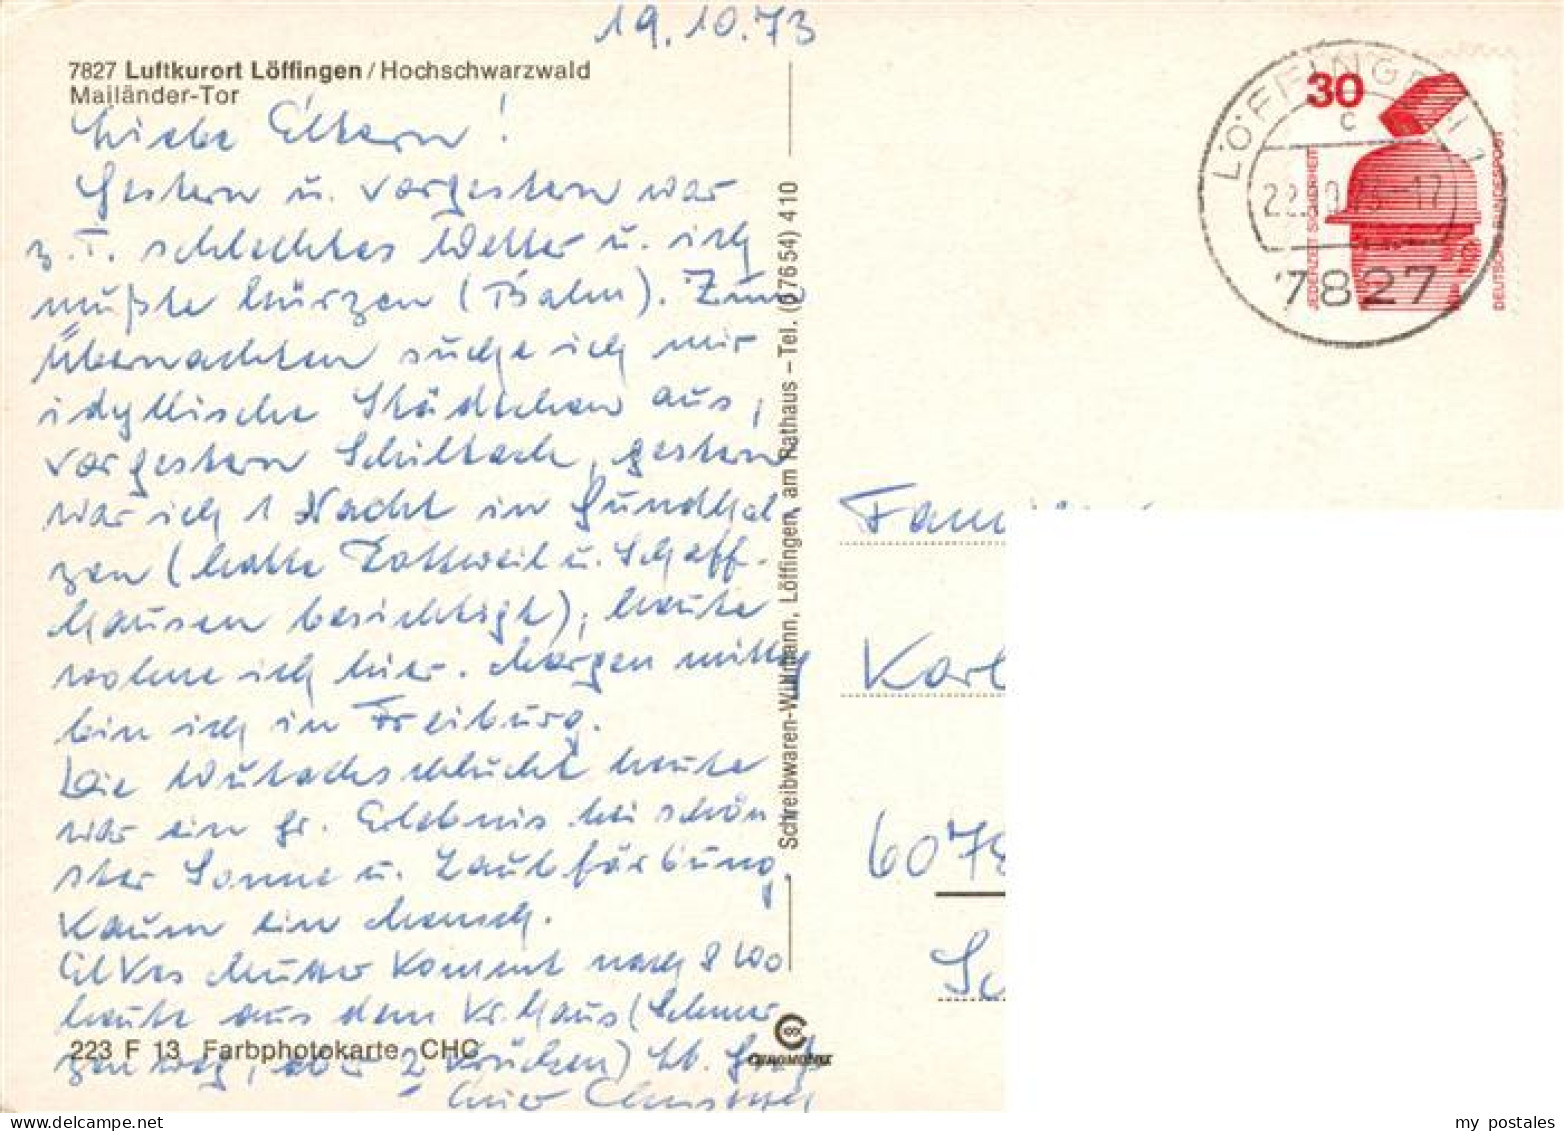 19.10.73
7827 Luftkurort Löffingen / Hochschwarzwald
Mailänder-Tor
Liebe Eltern!
Gestern u. vorgestern war
z.T. schlechtes Wetter u. ich
mußte kürzen (Bahn). Zum
Übernachten suche ich mir
idyllische Städtchen aus,
vorgestern Schiltach, gestern
war ich 1 Nacht in
(hatte Rottweil u. Schaff-
hausen besichtigt), heute
wohne ich hier. Morgen mittag
bin ich in Freiburg.
Die Wutachschlucht heute
war ein gr. Erlebnis bei schön
ster Sonne u. Laubfärbung.
Kaum ein Mensch.
Mutter kommt nach 8 Wo
heute aus dem Kr.Haus (Schmer
zen weg, aber 2 Krücken) Hb. Gruß
Euer
223 F 13 Farbphotokarte CHC
Schreibwaren-Wiltmann, Löffingen, am Rathaus – Tel. (07654) 410
CHROMOVOX
LÖFFINGEN 1
c
22.10.73-17
7827
30
JEDERZEIT SICHERHEIT
DEUTSCHE BUNDESPOST
Karl
6078
my postales